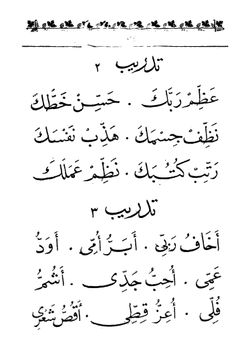 تدريب ٢
عَظِّمْ رَبَّكَ . حَسِّنْ خَطَّكَ
نَظِّفْ جِسْمَكَ . هَذِّبْ نَفْسَكَ
رَتِّبْ كُتُبَكَ . نَظِّمْ عَمَلَكَ
تدريب ٣
أَخَافُ رَبِّي . أَبَرُّ أُمِّي . أَوَدُّ
عَمِّي . أُحِبُّ جَدِّي . أَشُمُّ
فُلِّي . أُعِزُّ قِطِّي . أَقُصُّ شَعْرِي